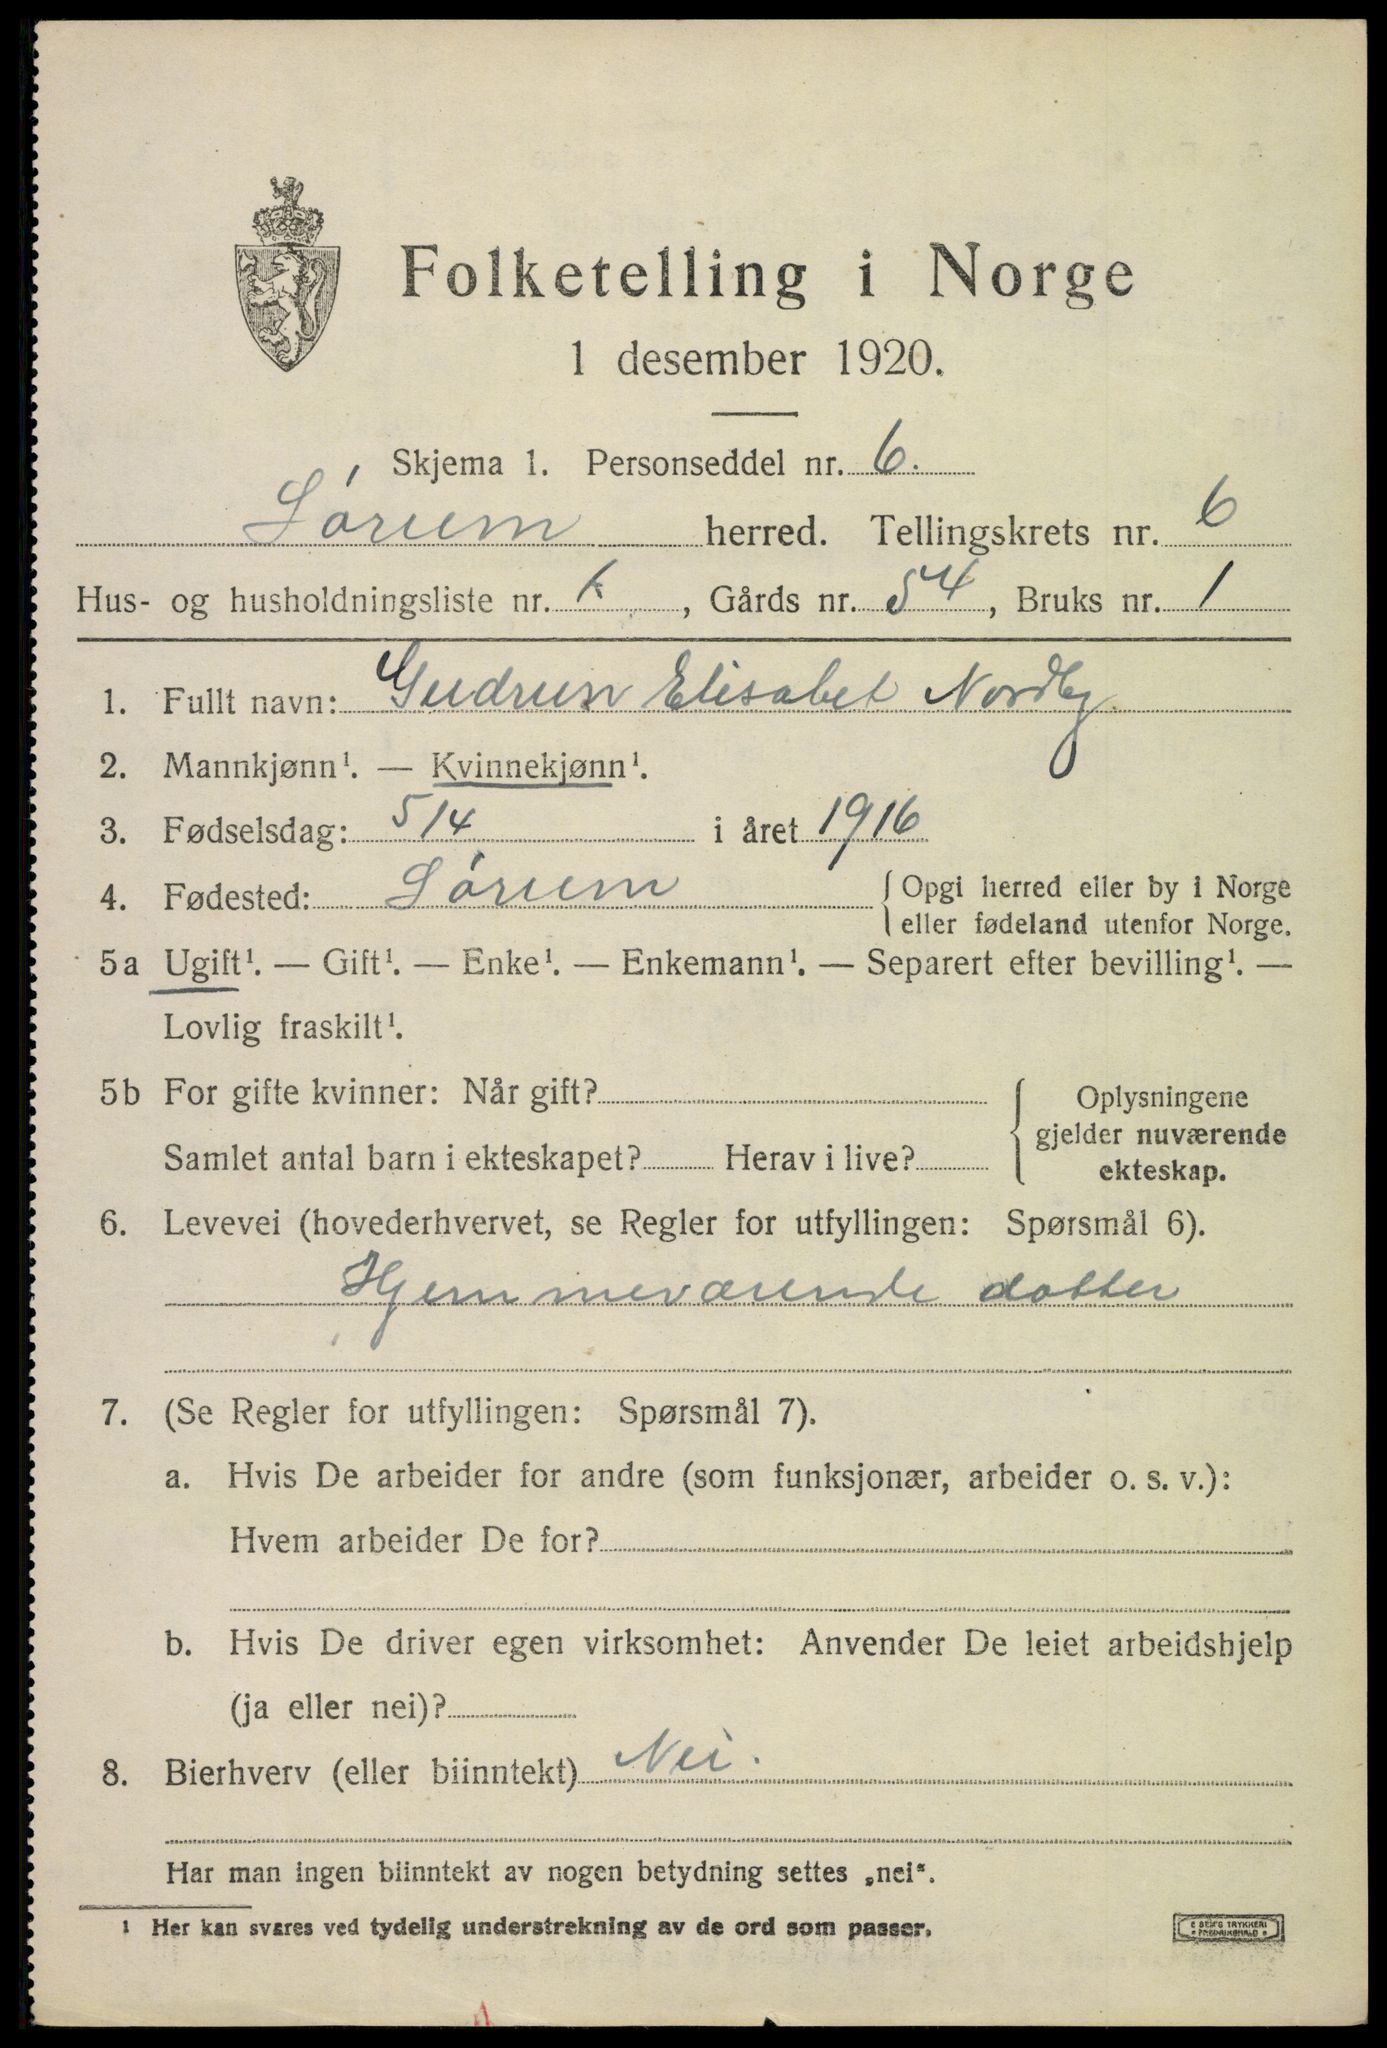 Folketelling i Norge
1 desember 1920.
Skjema 1. Personseddel nr. 6.
Sórum herred. Tellingskrets nr. 6
Hus- og husholdningsliste nr. , Gårds nr. 54, Bruks nr. 1
1. Fullt navn: Gudrun Elisabet Nordby
2. Mannkjønn¹. — Kvinnekjønn¹.
3. Fødselsdag: 5/4 i året 1916
4. Fødested: Sórum { Opgi herred eller by i Norge
eller fødeland utenfor Norge.
5a Ugift¹. — Gift¹. — Enke¹. — Enkemann¹. — Separert efter bevilling¹. —
Lovlig fraskilt¹.
5b For gifte kvinner: Når gift? { Oplysningene
gjelder nuværende
Samlet antal barn i ekteskapet? Herav i live? ekteskap.
6. Levevei (hovederhvervet, se Regler for utfyllingen: Spørsmål 6).
Hjemmeværende datter
7. (Se Regler for utfyllingen: Spørsmål 7).
a. Hvis De arbeider for andre (som funksjonær, arbeider o. s. v.):
Hvem arbeider De for?
b. Hvis De driver egen virksomhet: Anvender De leiet arbeidshjelp
(ja eller nei)?
8. Bierhverv (eller biinntekt) Nei.
Har man ingen biinntekt av nogen betydning settes „nei“.
¹ Her kan svares ved tydelig understrekning av de ord som passer.
E SEJFS TRYKKERI
FREDRIKSHALD